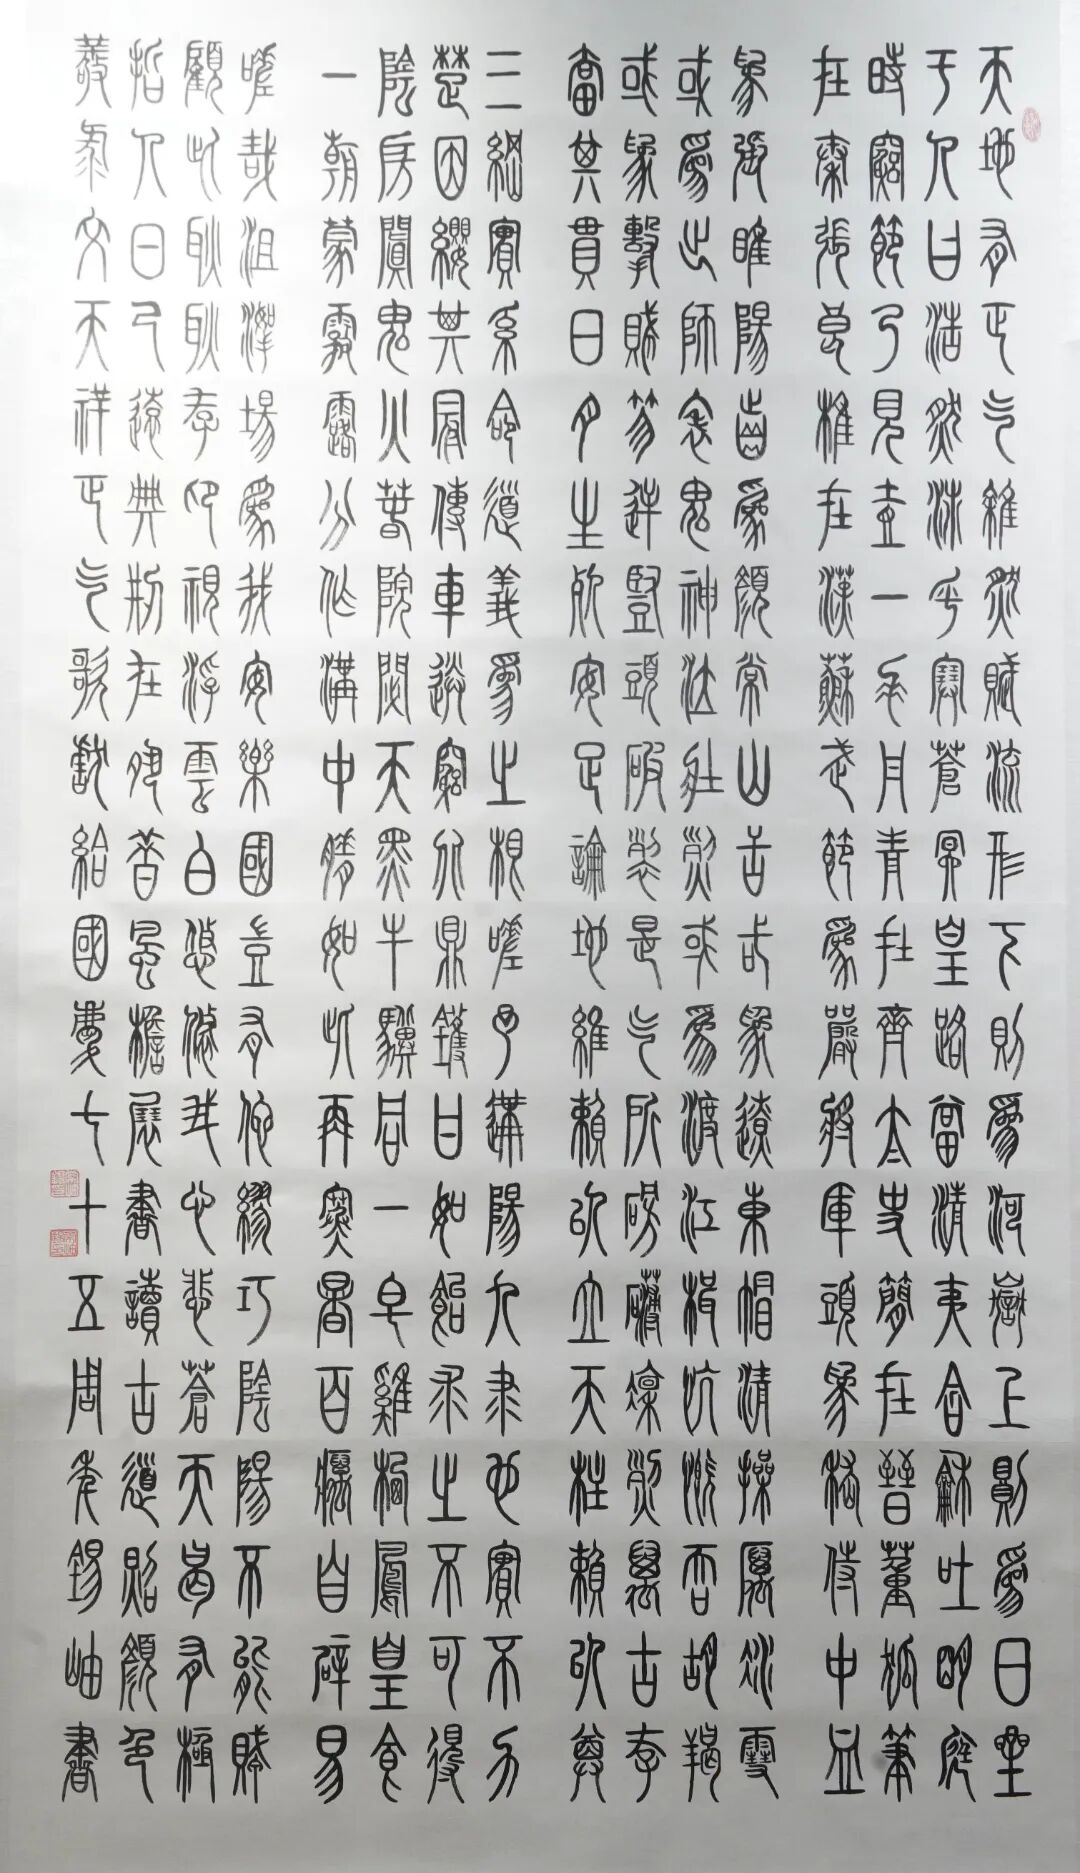 天地有正氣雜然賦流形下則為河嶽上則為日星
于人曰浩然沛乎塞蒼冥皇路當清夷含和吐明庭
時窮節乃見壹一垂丹青在齊太史簡在晉董狐筆
在秦張良椎在漢蘇武節為嚴將軍頭為嵇侍中血
為張睢陽齒為顏常山舌或為遼東帽清操厲冰雪
或為出師表鬼神泣壯烈或為渡江楫慷慨吞胡羯
或為擊賊笏逆豎頭破裂是氣所磅礴凜烈萬古存
當其貫日月生死安足論地維賴以立天柱賴以尊
三綱實系命道義為之根嗟予遘陽九隸也實不力
楚囚纓其冠傳車送窮北鼎鑊甘如飴求之不可得
陰房闃鬼火春院閟天黑牛驥同一皁雞棲鳳皇食
一朝蒙霧露分作溝中瘠如此再寒暑百癘自辟易
嗟哉沮洳場為我安樂國豈有他繆巧陰陽不能賊
顧此耿耿存仰視浮雲白悠悠我心悲蒼天曷有極
哲人日已遠典刑在夙昔風檐展書讀古道照顏色
文天祥正氣歌獻給國慶七十五周年錫岫書